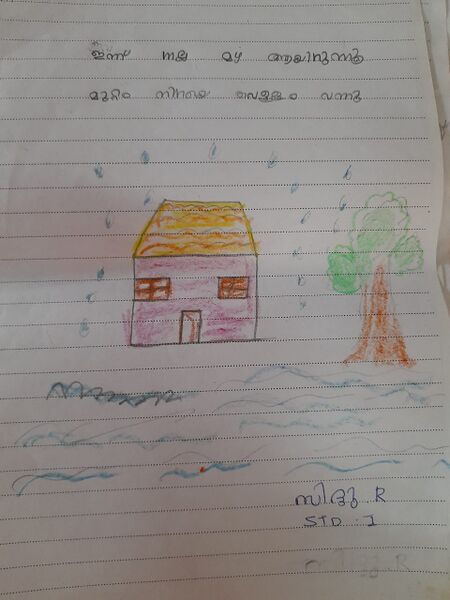 ഇന്ന് നല്ല മഴ ആയിരുന്നു
മുറ്റം നിറയെ വെള്ളം വന്നു
സിദ്ധു . R
STD : I